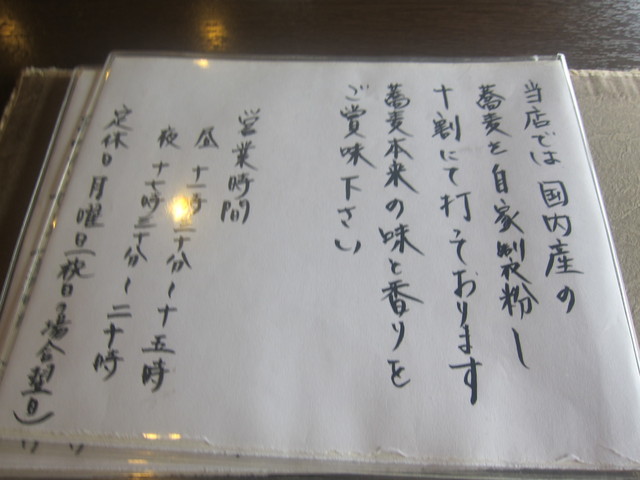 当店では国内産の
蕎麦を自家製粉し
十割にて打っております
蕎麦本来の味と香りを
ご賞味下さい
営業時間
昼 十一時三十分～十五時
夜 十七時三十分～二十時
定休日 月曜日(祝日の場合翌日)